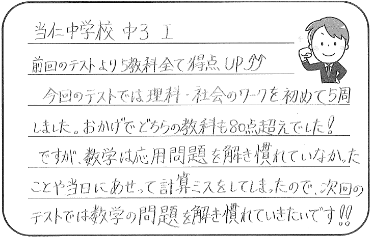 当仁中学校 中3 I
前回のテストより5教科全て得点UP⇈
今回のテストでは理科・社会のワークを初めて5周
しました。おかげでどちらの教科も80点超えでした!
ですが、数学は応用問題を解き慣れていなかった
ことや当日にあせって計算ミスをしてしまったので、次回の
テストでは数学の問題を解き慣れていきたいです!!